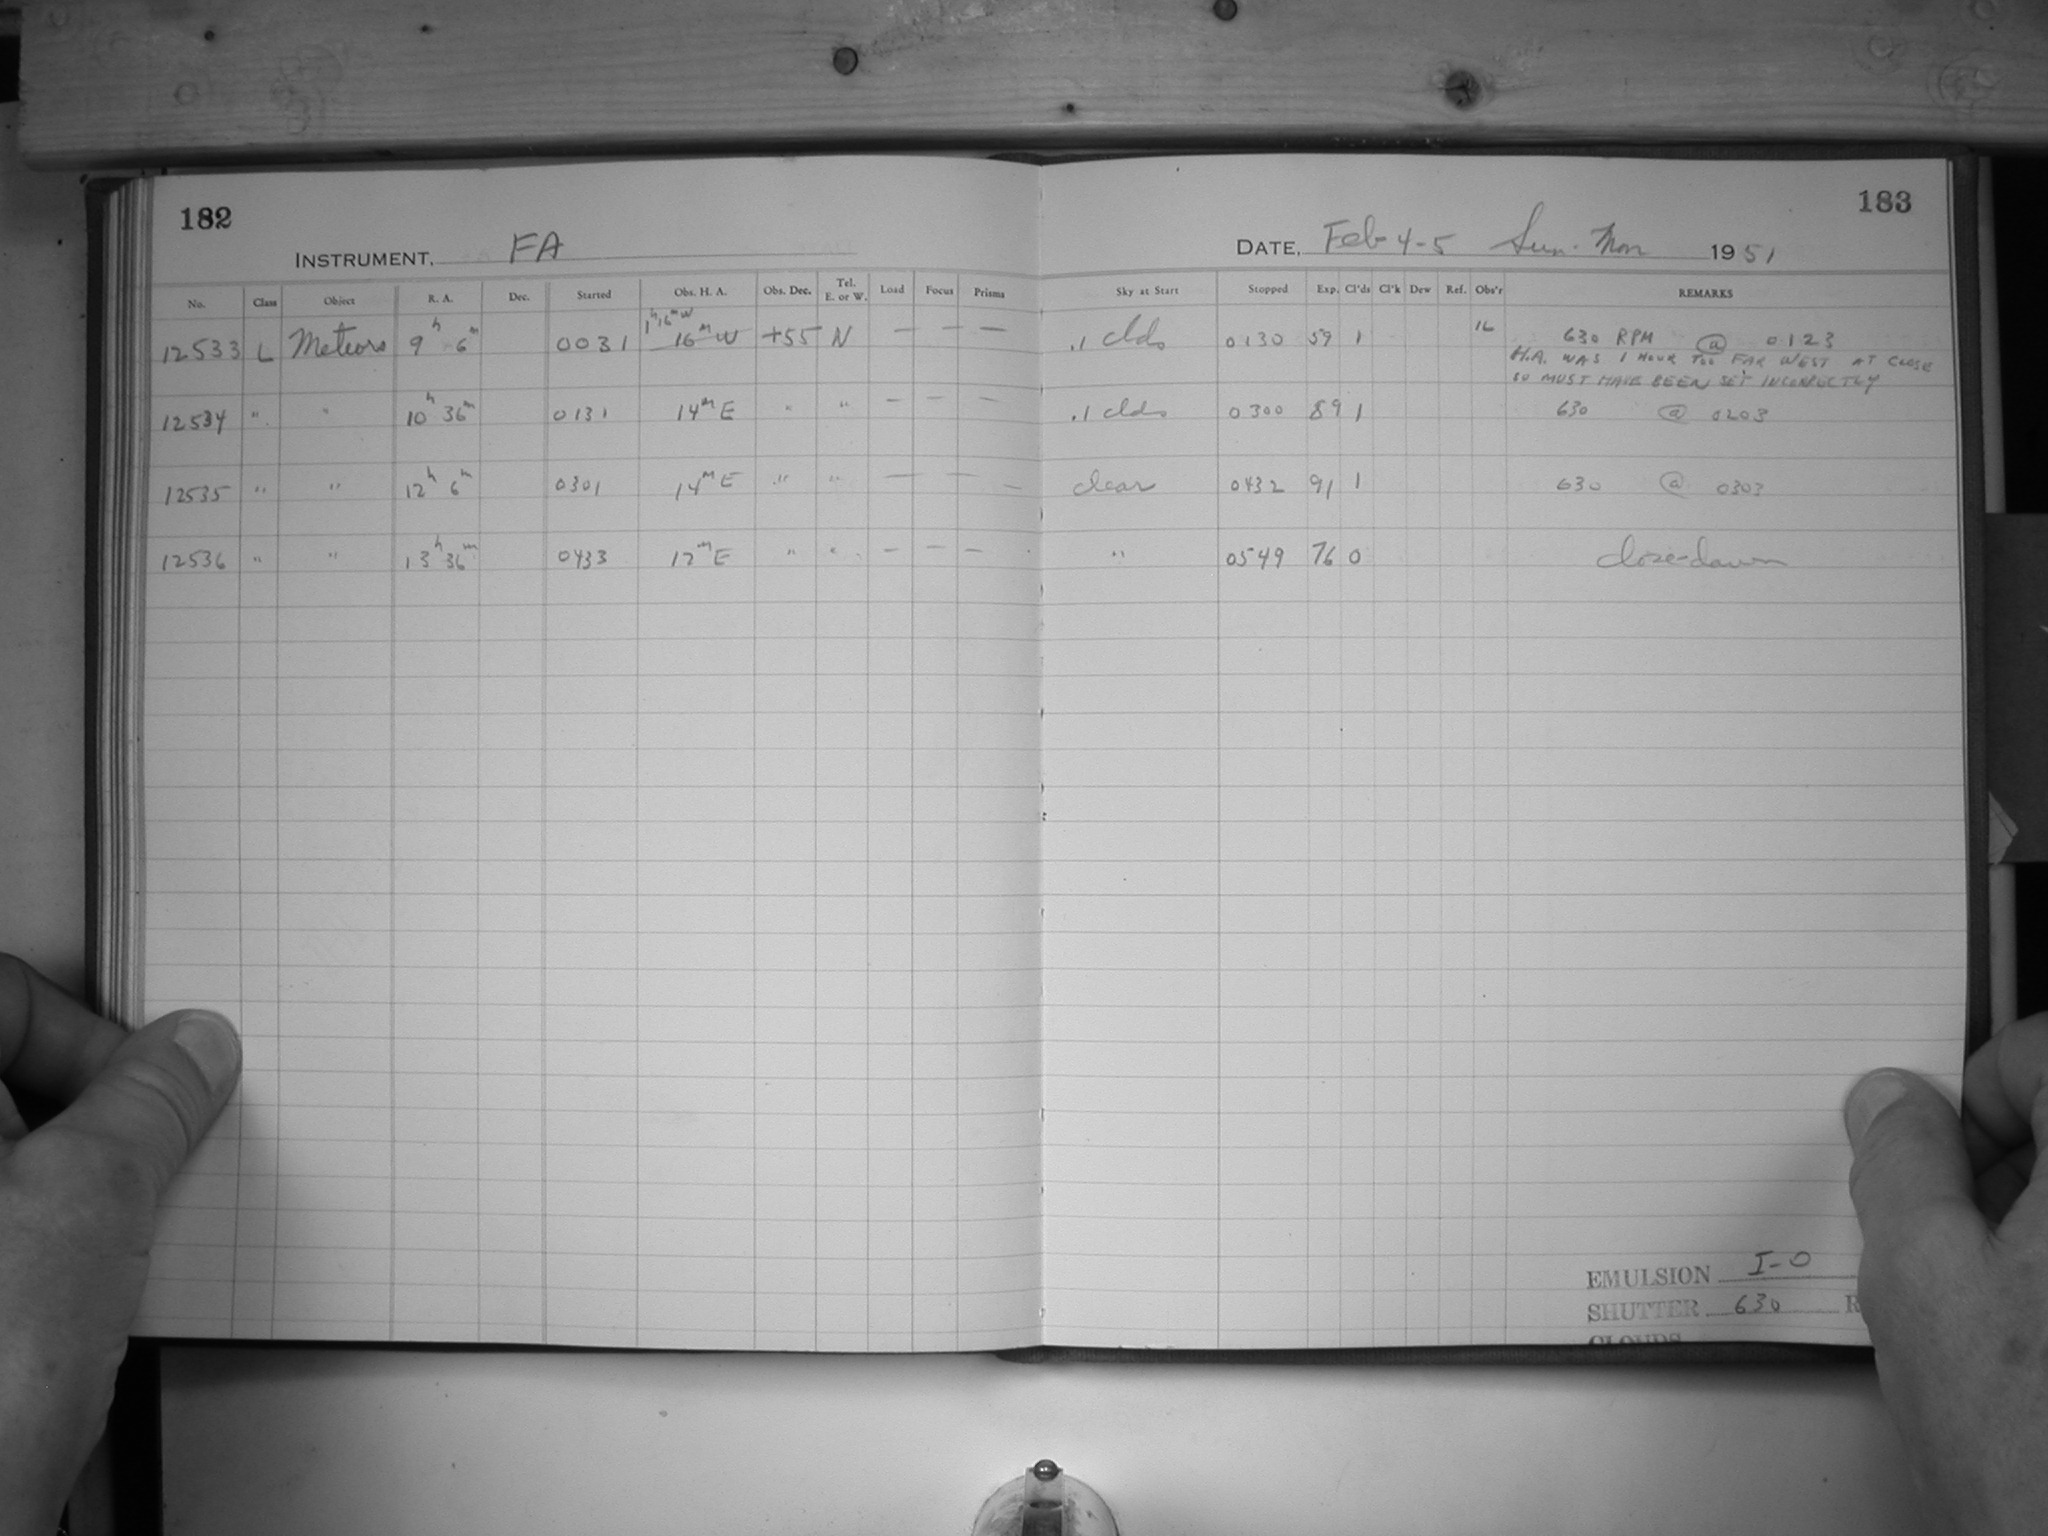 182
INSTRUMENT, FA
No. Class Object R. A. Dec. Started Obs. H. A. Obs. Dec. Tel. E. or W. Load Focus Prisms
1ʰ16ᵐW
12533 L Meteors 9ʰ 6ᵐ 0031 16ᵐ W +55 N — — —
12534 " " 10ʰ 36ᵐ 0131 14ᵐ E " " — — —
12535 " " 12ʰ 6ᵐ 0301 14ᵐ E " " — — —
12536 " " 13ʰ 36ᵐ 0433 12ᵐ E " " — — —
183
DATE, Feb 4-5 Sun-Mon 1951
Sky at Start Stopped Exp. Cl'ds Cl'k Dew Ref. Obs'r REMARKS
.1 clds 0130 59 1 630 RPM @ 0123
H.A. WAS 1 HOUR TOO FAR WEST AT CLOSE
SO MUST HAVE BEEN SET INCORRECTLY
.1 clds 0300 89 1 630 @ 0203
clear 0432 91 1 630 @ 0303
" 0549 76 0 close-dawn
EMULSION I-O
SHUTTER 630 R
CLOUDS